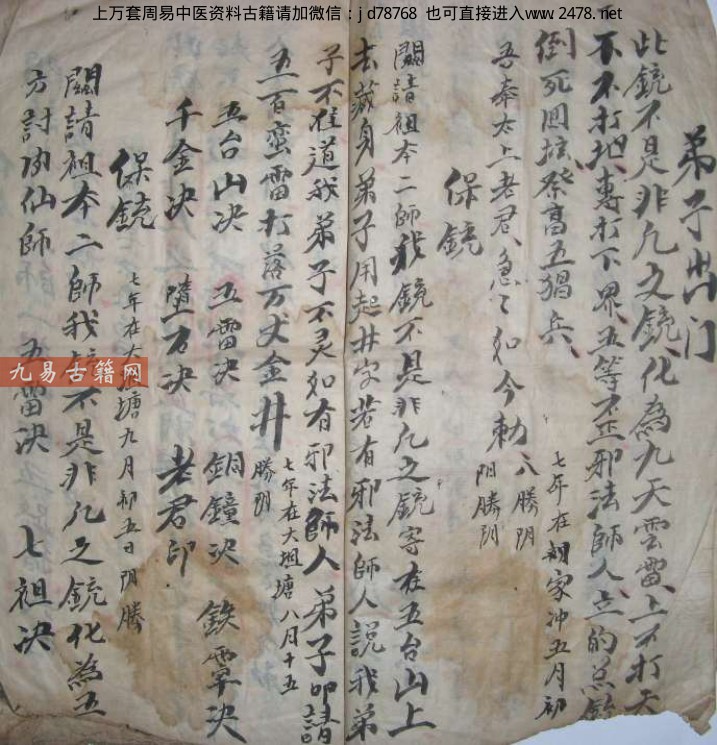 上万套周易中医资料古籍请加微信：jd78768 也可直接进入www.2478.net
弟子出门
此鏡不是非凡之鏡化為九天雲雷上不打天
下不打地專打下界五等邪法師人
倒死回
五猖兵
吾奉太上老君急々如今勅 八勝阴
阳勝阴
七年在胡家冲五月初
保鏡
開請祖本二師我鏡不是非凡之鏡寄在五台山上
去藏身弟子用起井字若有邪法師人說我弟
子不准道我弟子不灵如有邪法師人弟子叩請
五百蛮雷打落万丈金井 七年在大坦塘八月十五
勝阴
五台山决 五雷决 銅鐘决 鉄罩决
千金决 墮万决 老君印
保鏡 七年在大坦塘九月初五日阴勝
開請祖本二師我鏡不是非凡之鏡化為五
方討仙師 五雷决 七祖决
九易古籍网